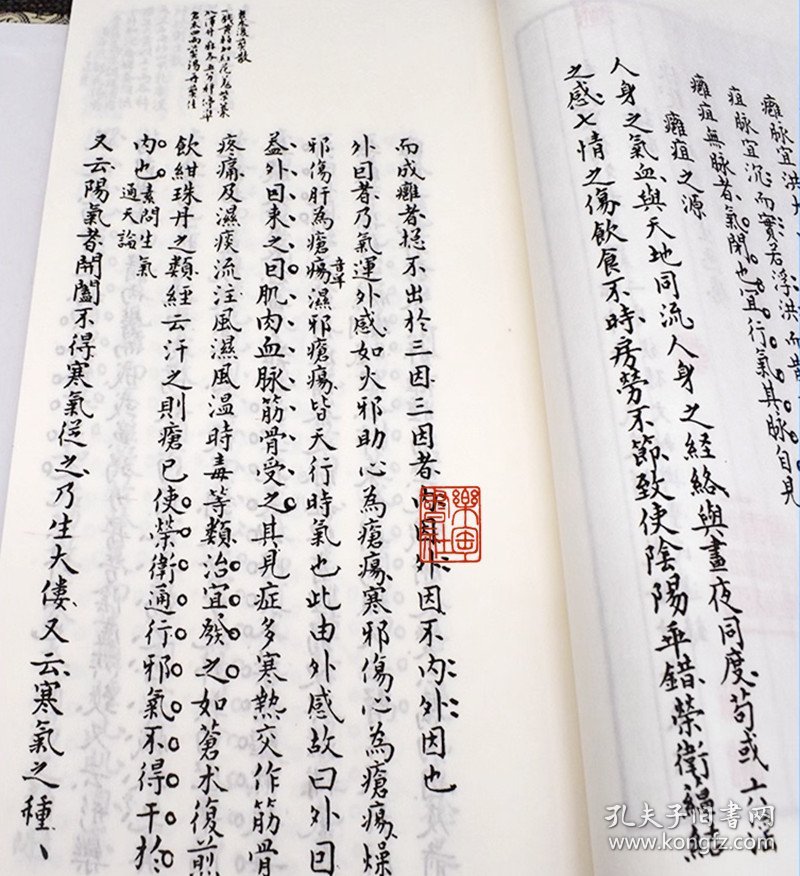 癰脉宜洪大
疽脉宜沉而實若浮洪而
癰疽無脉者氣閉也宜行氣其脉自見
癰疽之源
人身之氣血與天地同流人身之経絡與晝夜同度苟或六淫
之感七情之傷飲食不時房勞不節致使陰陽乖錯榮衛緼結
而成癰者揔不出於三因三因者內因外因不內外因也
外因者乃氣運外感如火邪助心為瘡瘍寒邪傷心為瘡瘍燥
邪傷肝為瘡瘍濕邪瘡瘍皆天行時氣也此由外感故曰外因
益外因来之曰肌肉血脉筋骨受之其見症多寒熱交作筋骨
疼痛及濕痰流注風濕風温時毒等類治宜發之如蒼朮復煎
飲紺珠丹之類経云汗之則瘡已使榮衛通行邪氣不得干於
內也素問生氣
通天論
又云陽氣者開闔不得寒氣從之乃生大僂又云寒氣之種
孔夫子旧书网
www.kongfz.com